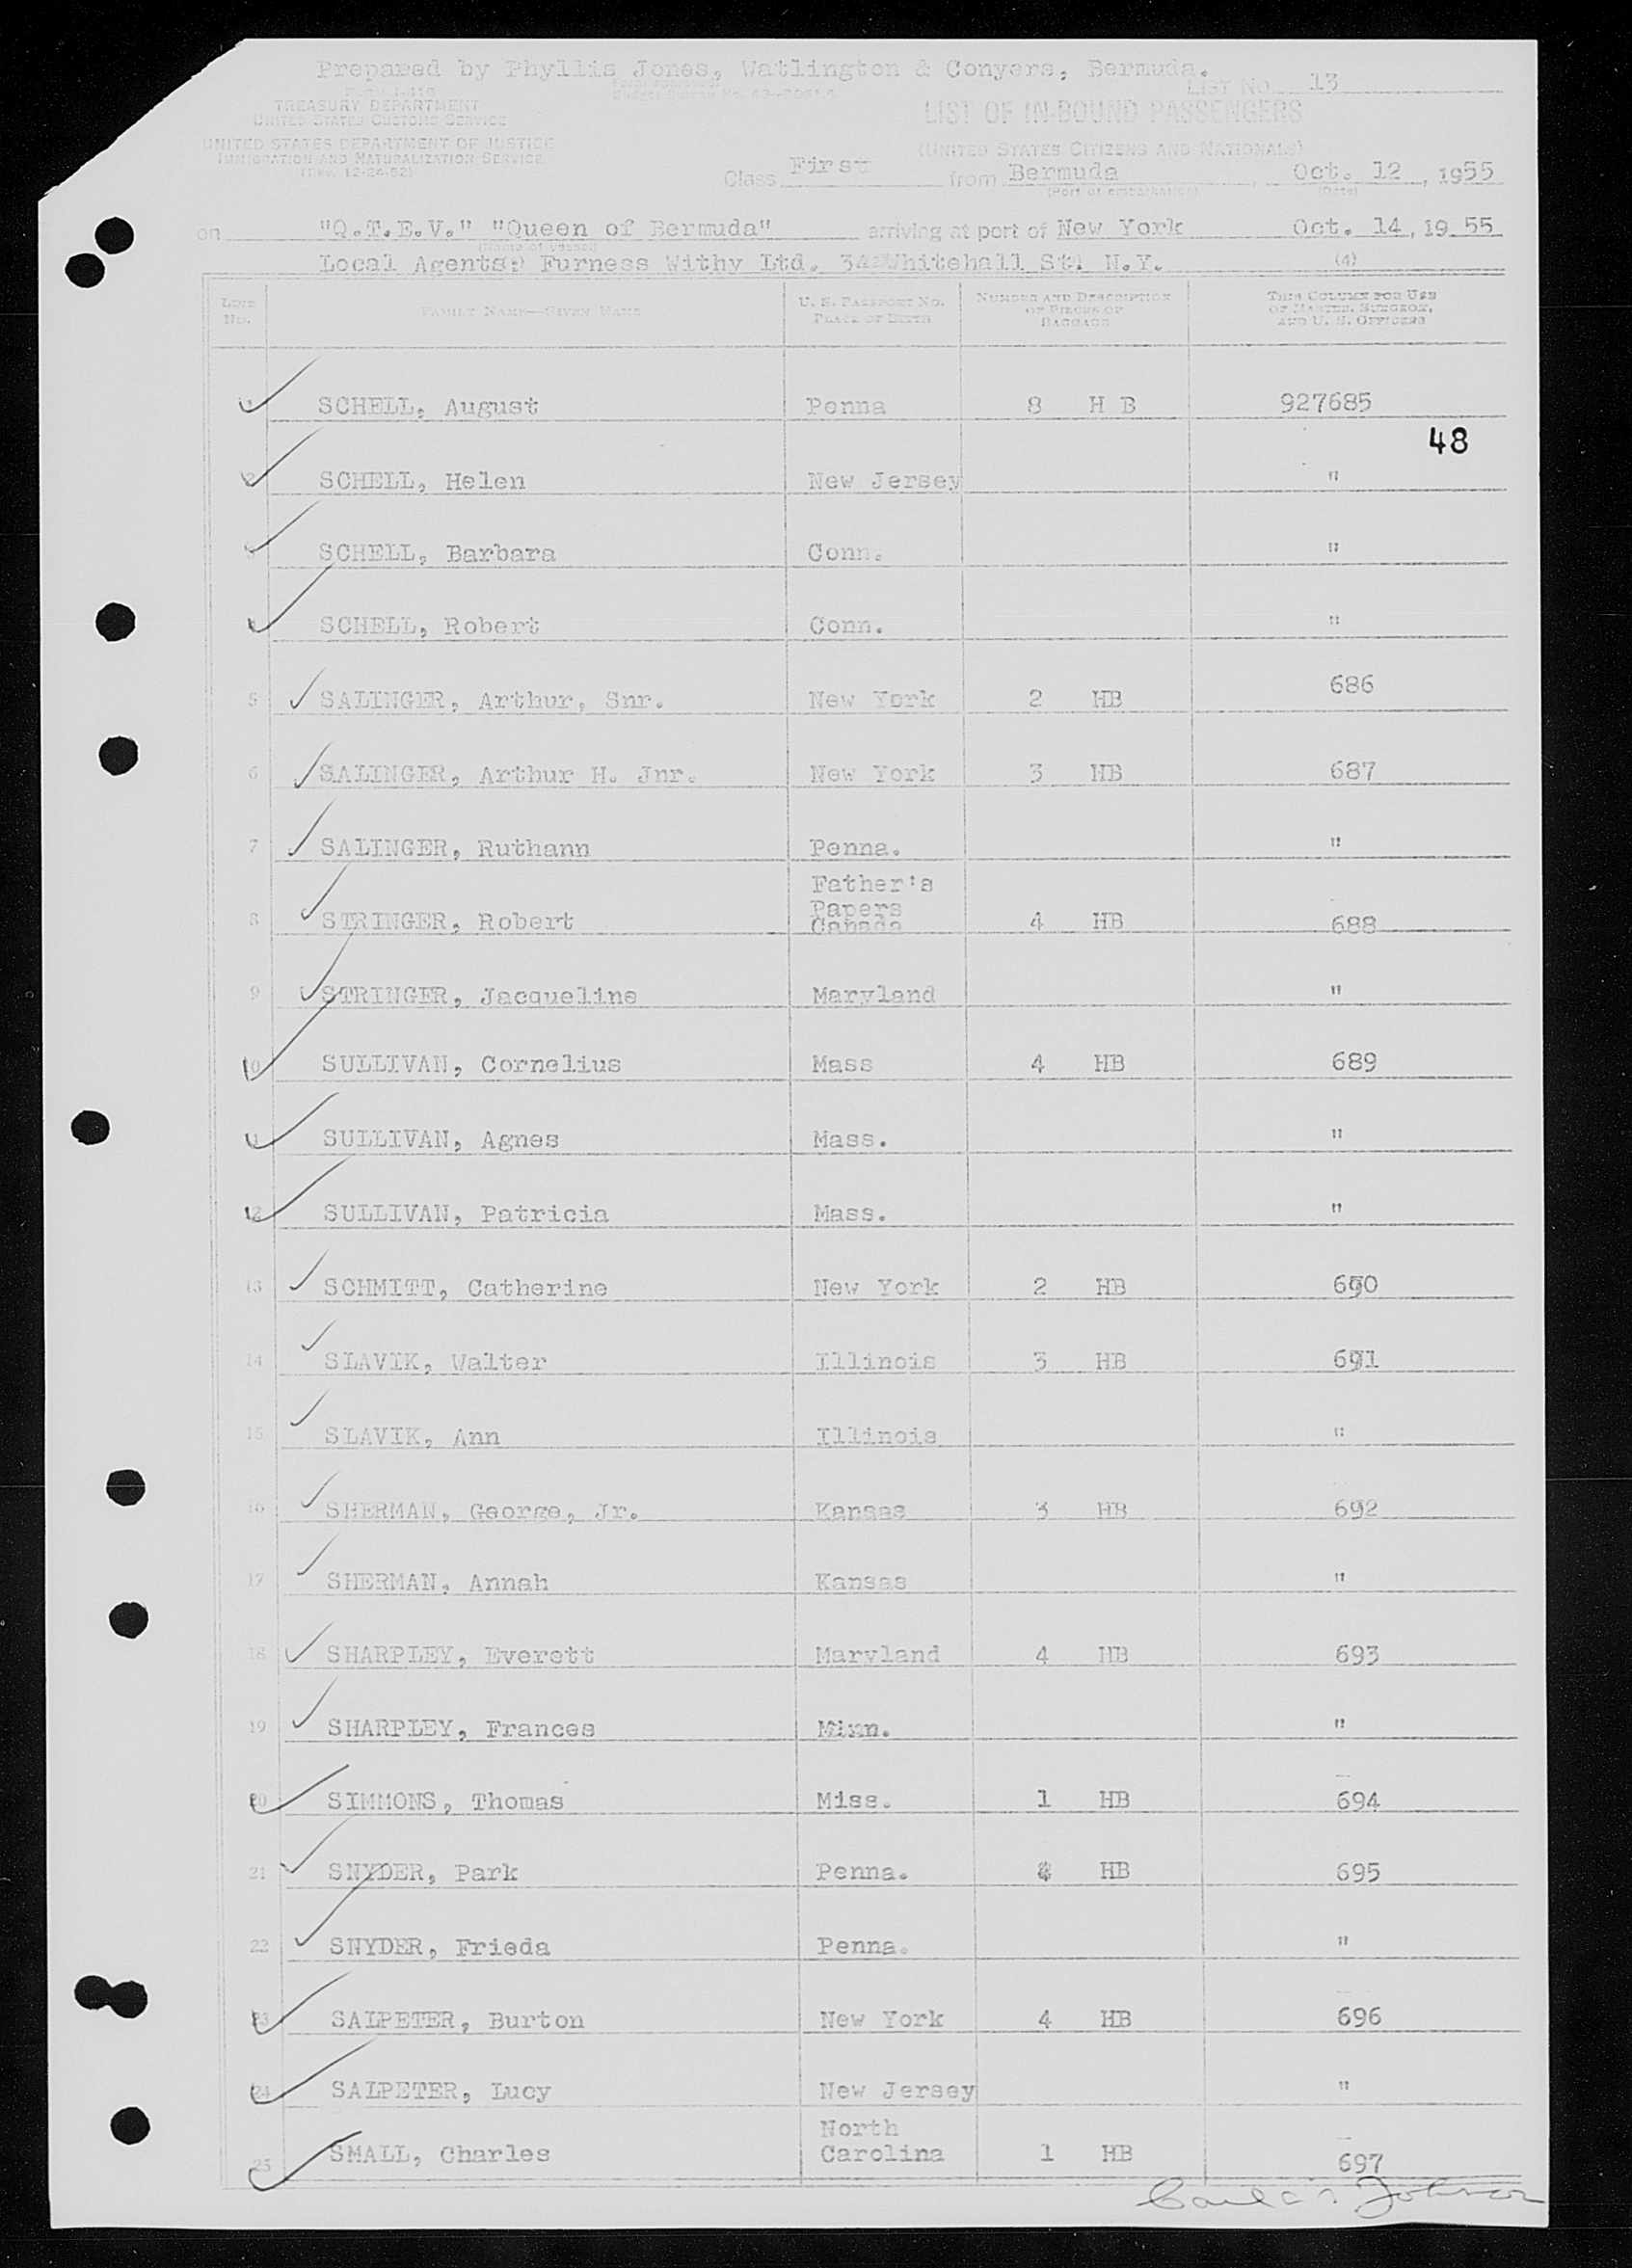 Prepared by Phyllis Jones, Watlington & Conyers, Bermuda.
LIST NO. 13
TREASURY DEPARTMENT
UNITED STATES CUSTOMS SERVICE
LIST OF IN-BOUND PASSENGERS
UNITED STATES DEPARTMENT OF JUSTICE
IMMIGRATION AND NATURALIZATION SERVICE
(UNITED STATES CITIZENS AND NATIONALS)
(Rev. 12-24-52)
Class First from Bermuda, Oct. 12, 1955
(Port of embarkation) (Date)
on "Q.T.E.V." "Queen of Bermuda" arriving at port of New York Oct. 14, 19 55
(Name of vessel)
Local Agents: Furness Withy Ltd. 34 Whitehall St. N.Y. (4)
LINE No. FAMILY NAME—GIVEN NAME U. S. PASSPORT NO. PLACE OF BIRTH NUMBER AND DESCRIPTION OF PIECES OF BAGGAGE THIS COLUMN FOR USE OF MASTER, SURGEON, AND U. S. OFFICERS
SCHELL, August Penna 8 H B 927685
48
2 SCHELL, Helen New Jersey "
3 SCHELL, Barbara Conn. "
SCHELL, Robert Conn. "
5 SALINGER, Arthur, Snr. New York 2 HB 686
6 SALINGER, Arthur H. Jnr. New York 3 HB 687
7 SALINGER, Ruthann Penna. "
Father's
Papers
8 STRINGER, Robert Canada 4 HB 688
9 STRINGER, Jacqueline Maryland "
10 SULLIVAN, Cornelius Mass 4 HB 689
11 SULLIVAN, Agnes Mass. "
12 SULLIVAN, Patricia Mass. "
13 SCHMITT, Catherine New York 2 HB 690
14 SLAVIK, Walter Illinois 3 HB 691
15 SLAVIK, Ann Illinois "
16 SHERMAN, George, Jr. Kansas 3 HB 692
17 SHERMAN, Annah Kansas "
18 SHARPLEY, Everett Maryland 4 HB 693
19 SHARPLEY, Frances Minn. "
20 SIMMONS, Thomas Miss. 1 HB 694
21 SNYDER, Park Penna. 4 HB 695
22 SNYDER, Frieda Penna. "
23 SALPETER, Burton New York 4 HB 696
24 SALPETER, Lucy New Jersey "
North
25 SMALL, Charles Carolina 1 HB 697
Johnson